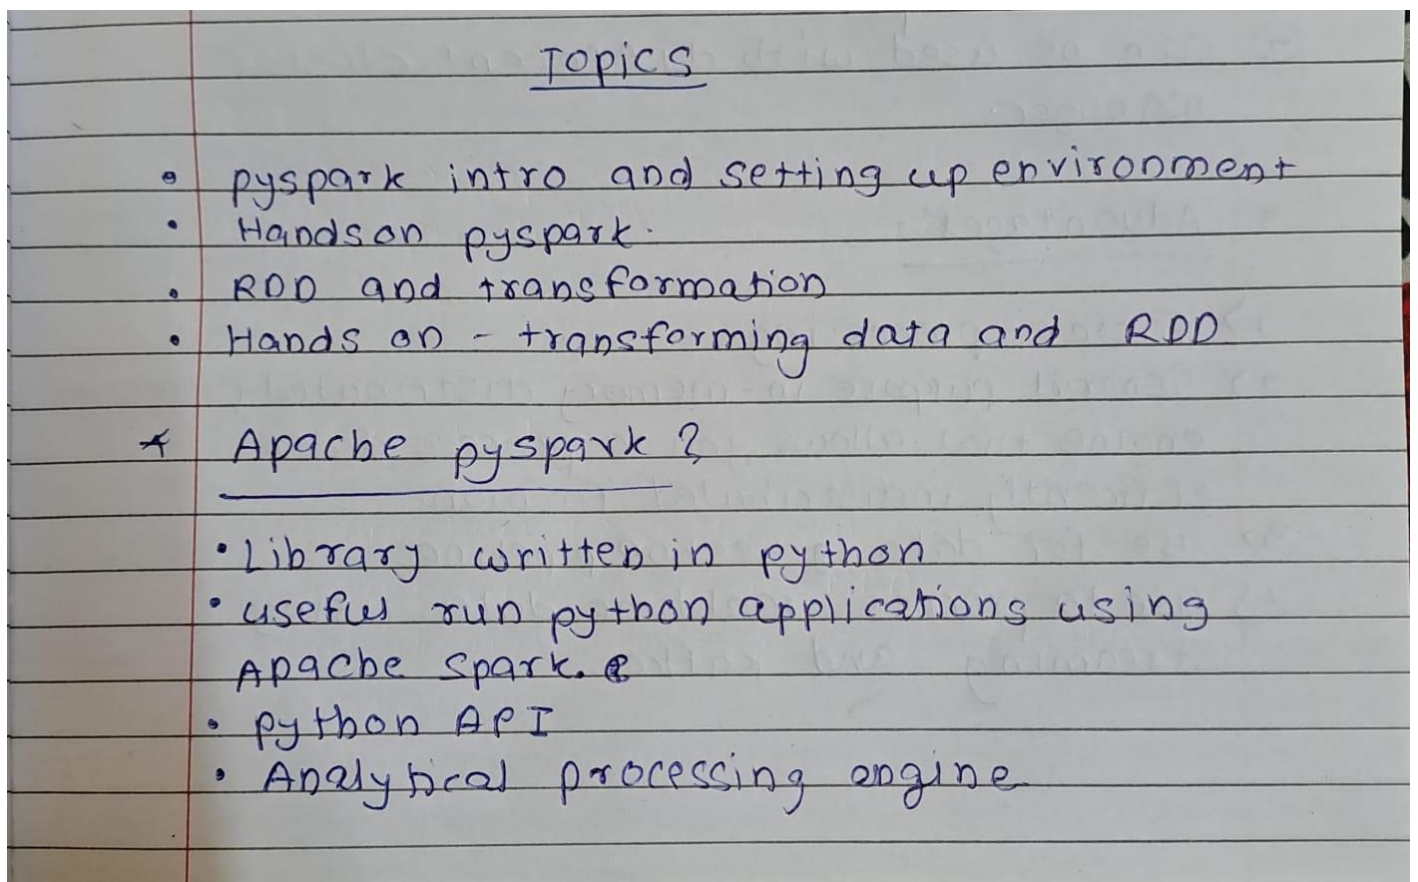 Topics
• pyspark intro and setting up environment
• Handson pyspark.
• RDD and transformation
• Hands on - transforming data and RDD
* Apache pyspark ?
• Library written in python
• useful run python applications using
Apache Spark.
• python API
• Analytical processing engine